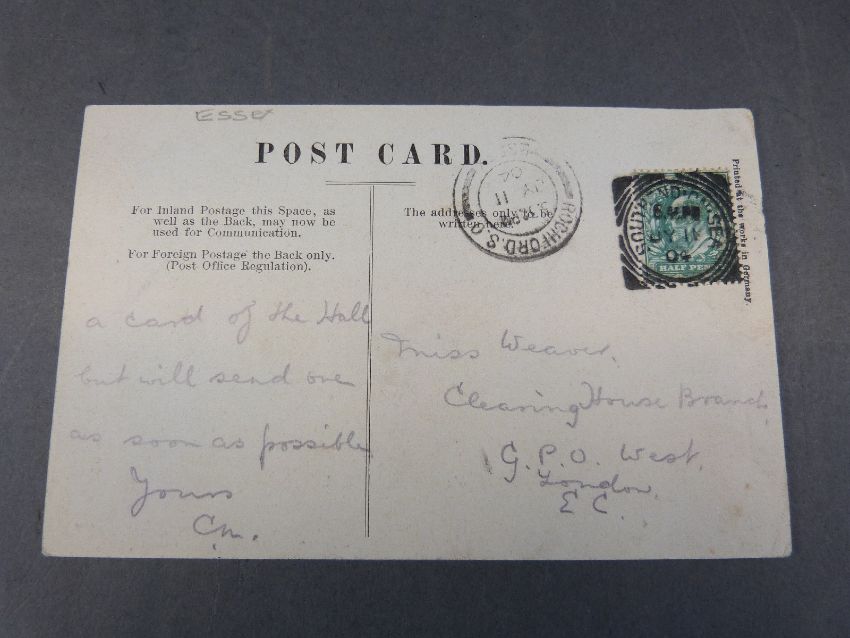 ESSEX
POST CARD.
For Inland Postage this Space, as
well as the Back, may now be
used for Communication.
For Foreign Postage the Back only.
(Post Office Regulation).
The address only to be
written here.
Printed at the works in Germany.
ROCHFORD. S.O.
JY 11
04
SOUTHEND-ON-SEA
JY 11
04
HALF PENNY
a card of the Hall
but will send one
as soon as possible
Yours
Cm.
Miss Weaver.
Clearing House Branch
G.P.O. West.
London.
E C.